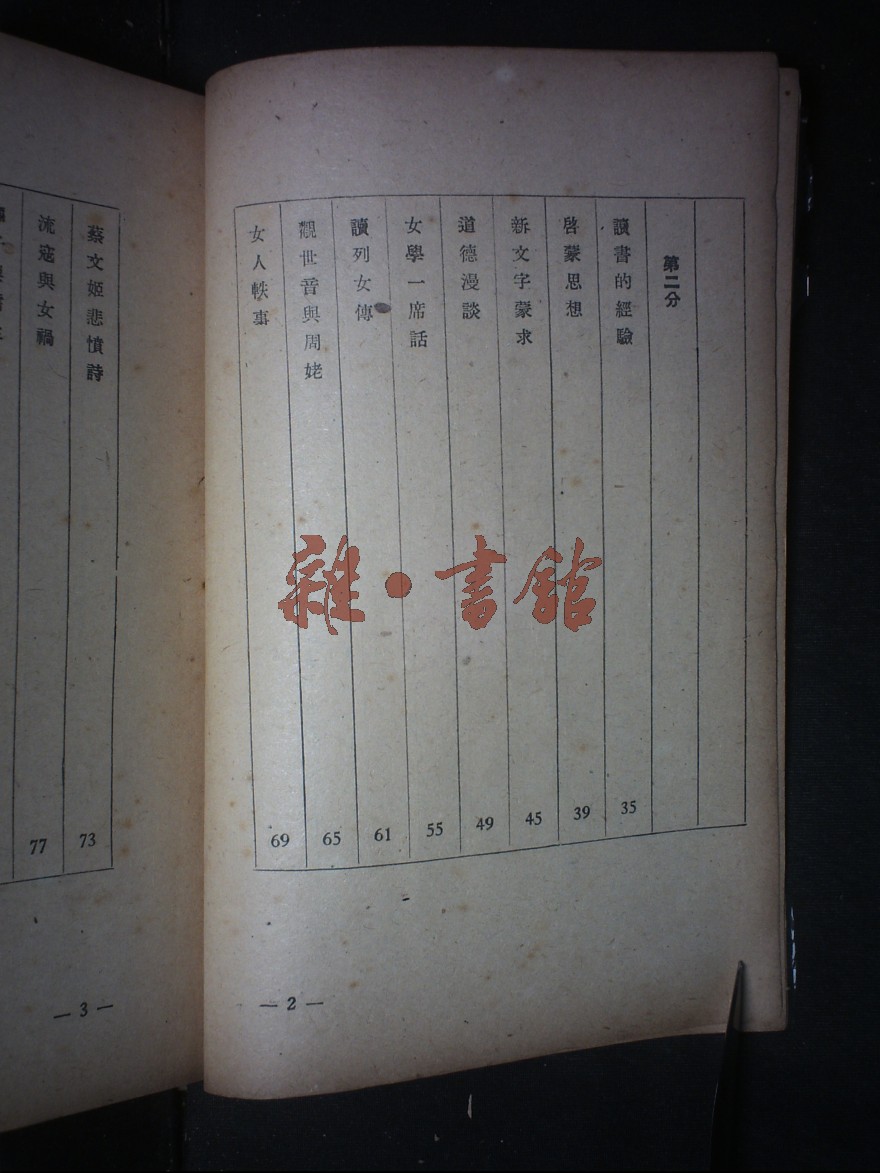 第二分
讀書的經驗 35
啓蒙思想 39
新文字蒙求 45
道德漫談 49
女學一席話 55
讀列女傳 61
觀世音與周姥 65
女人軼事 69
— 2 —
蔡文姬悲憤詩 73
流寇與女禍 77
— 3 —
雜·書館